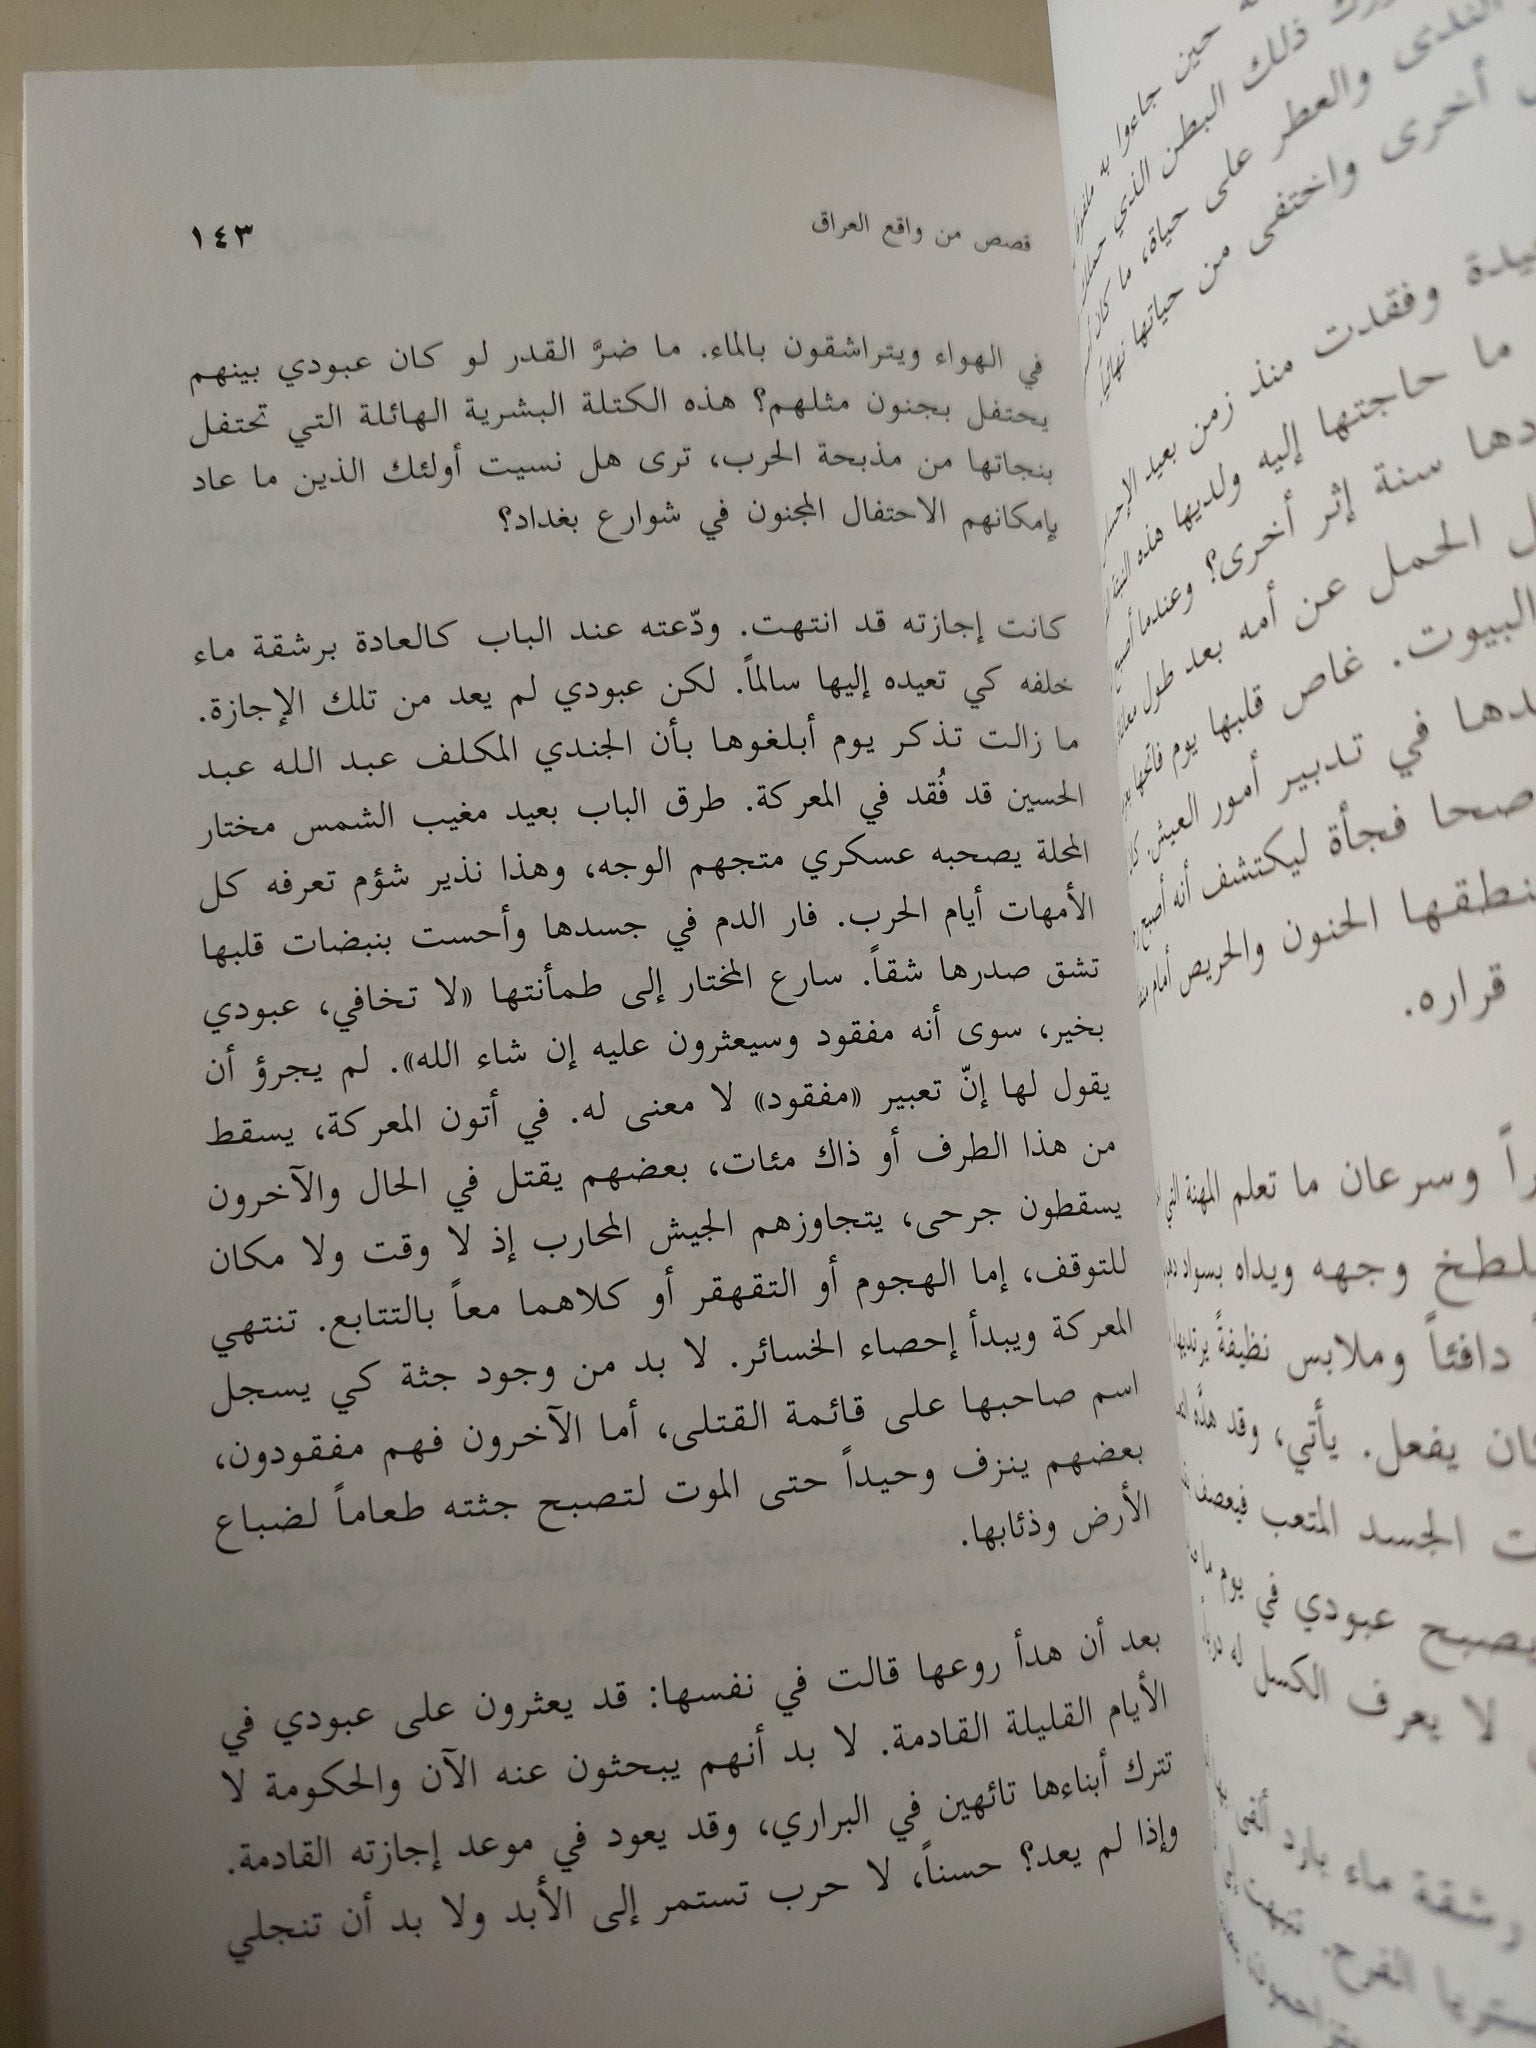 قصص من واقع العراق
١٤٣
في الهواء ويتراشقون بالماء. ما ضرَّ القدر لو كان عبودي بينهم
يحتفل بجنون مثلهم؟ هذه الكتلة البشرية الهائلة التي تحتفل
بنجاتها من مذبحة الحرب، ترى هل نسيت أولئك الذين ما عاد
بإمكانهم الاحتفال المجنون في شوارع بغداد؟
كانت إجازته قد انتهت. ودّعته عند الباب كالعادة برشقة ماء
خلفه كي تعيده إليها سالماً. لكن عبودي لم يعد من تلك الإجازة.
ما زالت تذكر يوم أبلغوها بأن الجندي المكلف عبد الله عبد
الحسين قد فُقد في المعركة. طرق الباب بعيد مغيب الشمس مختار
المحلة يصحبه عسكري متجهم الوجه، وهذا نذير شؤم تعرفه كل
الأمهات أيام الحرب. فار الدم في جسدها وأحست بنبضات قلبها
تشق صدرها شقاً. سارع المختار إلى طمأنتها «لا تخافي، عبودي
بخير، سوى أنه مفقود وسيعثرون عليه إن شاء الله». لم يجرؤ أن
يقول لها إنّ تعبير «مفقود» لا معنى له. في أتون المعركة، يسقط
من هذا الطرف أو ذاك مئات، بعضهم يقتل في الحال والآخرون
يسقطون جرحى، يتجاوزهم الجيش المحارب إذ لا وقت ولا مكان
للتوقف، إما الهجوم أو التقهقر أو كلاهما معاً بالتتابع. تنتهي
المعركة ويبدأ إحصاء الخسائر. لا بد من وجود جثة كي يسجل
اسم صاحبها على قائمة القتلى، أما الآخرون فهم مفقودون،
بعضهم ينزف وحيداً حتى الموت لتصبح جثته طعاماً لضباع
الأرض وذئابها.
بعد أن هدأ روعها قالت في نفسها: قد يعثرون على عبودي في
الأيام القليلة القادمة. لا بد أنهم يبحثون عنه الآن والحكومة لا
تترك أبناءها تائهين في البراري، وقد يعود في موعد إجازته القادمة.
وإذا لم يعد؟ حسناً، لا حرب تستمر إلى الأبد ولا بد أن تنجلي
حين جاءوا به
ذلك البطن الذي
الندى والعطر على حياة، ما كان
أخرى واختفى من حياتها نهائياً.
وفقدت منذ زمن بعيد
ما حاجتها إليه ولديها هذه
سنة إثر أخرى؟ وعندما أصبح
الحمل عن أمه بعد طول
البيوت. غاص قلبها يوم فاتحها
في تدبير أمور العيش.
صحا فجأة ليكتشف أنه أصبح
الحنون والحريص أمام
قراره.
وسرعان ما تعلم المهنة التي
وجهه ويداه بسواد
دافئاً وملابس نظيفةً يرتديها
يفعل. يأتي، وقد هدَّه
الجسد المتعب فيعصف
يصبح عبودي في يوم ما
لا يعرف الكسل
رشقة ماء بارد
الفرح.